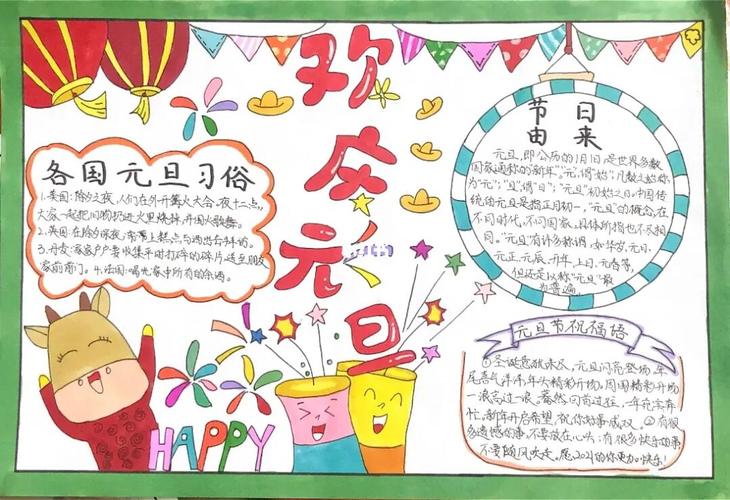 欢庆元旦
各国元旦习俗
1.美国:除夕之夜,人们在外开篝火大会。夜十二点,
大家一起把旧物扔进火里烧掉,并围火歌舞。
2.英国:在除夕深夜,常带上糕点与酒出去拜访。
3.丹麦:家家户户要收集平时打碎的碎片送至朋友
家前门。4.法国:喝光家中所有的余酒。
节日
由来
元旦,即公历的1月1日是世界多数
国家通称的"新年"。"元",谓"始",凡数之始称
为"元";"旦",谓"日";"元旦"初始之日。中国传
统的元旦是指正月初一,"元旦"的概念,在
不同时代,不同国家,具体所指也不尽相
同。"元旦"有许多称谓,如岁首、元日、
元正、元辰、开年、上日、元春等,
但还是以称"元旦"最
为普遍
元旦节祝福语
①圣诞意犹未尽,元旦闪亮登场,年
尾喜气洋洋,年头精彩开场,周围精彩开场
一浪高过一浪,蓦然回首过往,一年充实奔
忙,新年开启希望,祝你好事成双。②有很
多遗憾的事,不要放在心头;有很多快乐的事
不要随风吹走。愿2021的你更加快乐!
HAPPY